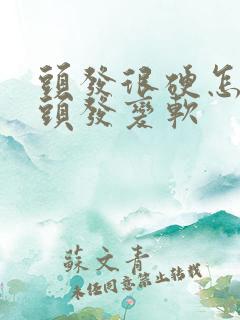 頭發很硬怎
頭發變軟
蘇文青
未經同意禁止轉載